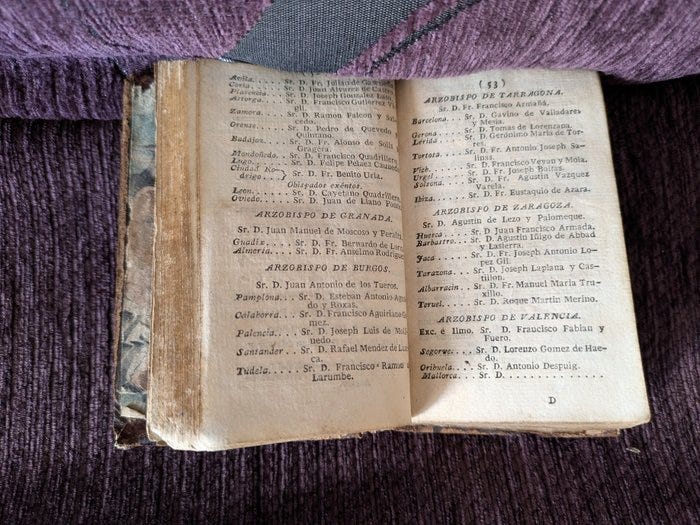 Avila...... Sr. D. Fr. Julian de
Coria...... Sr. D. Juan Alvarez de
Plasencia... Sr. D. Joseph Gonzalez
Astorga.... Sr. D. Francisco Gutierrez
gil.
Zamora.... Sr. D. Ramon Falcon y
cedo.
Orense..... Sr. D. Pedro de Quevedo
Quintano.
Badajoz.... Sr. D. Fr. Alonso de Solis
Gragera.
Mondoñedo. Sr. D. Francisco Quadrillero
Lugo...... Sr. D. Felipe Pelaez
Ciudad Ro-
drigo...} Sr. D. Fr. Benito Uria.
Obispados exêntos.
Leon...... Sr. D. Cayetano Quadrillero.
Oviedo..... Sr. D. Juan de Llano Ponce
ARZOBISPO DE GRANADA.
Sr. D. Juan Manuel de Moscoso y Peralta.
Guadix.... Sr. D. Fr. Bernardo de
Almeria.... Sr. D. Fr. Anselmo Rodriguez
ARZOBISPO DE BURGOS.
Sr. D. Juan Antonio de los Tueros.
Pamplona... Sr. D. Esteban Antonio
do y Roxas.
Calahorra... Sr. D. Francisco Aguiriano
mez.
Palencia.... Sr. D. Joseph Luis de
nedo.
Santander... Sr. D. Rafael Mendez de
ca.
Tudela..... Sr. D. Francisco Ramon
Larumbe.
(53)
ARZOBISPO DE TARRAGONA.
Sr. D. Fr. Francisco Armañá.
Barcelona... Sr. D. Gavino de Valladares
y Mesia.
Gerona..... Sr. D. Tomas de Lorenzana.
Lérida..... Sr. D. Gerónimo Maria de Tor-
res.
Tortosa.... Sr. D. Fr. Antonio Joseph Sa-
linas.
Vich....... Sr. D. Francisco Veyan y Mola.
Urgel...... Sr. D. Fr. Joseph Boltas.
Solsona.... Sr. D. Fr. Agustin Vazquez
Varela.
Ibiza...... Sr. D. Fr. Eustaquio de Azara.
ARZOBISPO DE ZARAGOZA.
Sr. D. Agustin de Lezo y Palomeque.
Huesca.... Sr. D. Juan Francisco Armada.
Barbastro.. Sr. D. Agustin Iñigo de Abbad
y Lasierra.
Jaca...... Sr. D. Fr. Joseph Antonio Lo-
pez Gil.
Tarazona... Sr. D. Joseph Laplana y Cas-
tillon.
Albarracin.. Sr. D. Fr. Manuel Maria Tru-
xillo.
Teruel..... Sr. D. Roque Martin Merino.
ARZOBISPO DE VALENCIA.
Exc. é Ilmo. Sr. D. Francisco Fabian y
Fuero.
Segorve.... Sr. D. Lorenzo Gomez de Hae-
do.
Orihuela... Sr. D. Antonio Despuig.
Mallorca... Sr. D. . . . . . . . . . . . . .
D